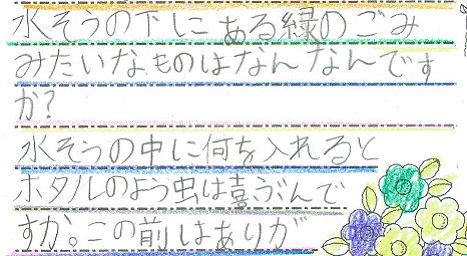 水そうの下にある緑のごみ
みたいなものはなんなんです
か?
水そうの中に何を入れると
ホタルのよう虫は喜ぶんで
すか。この前はありが